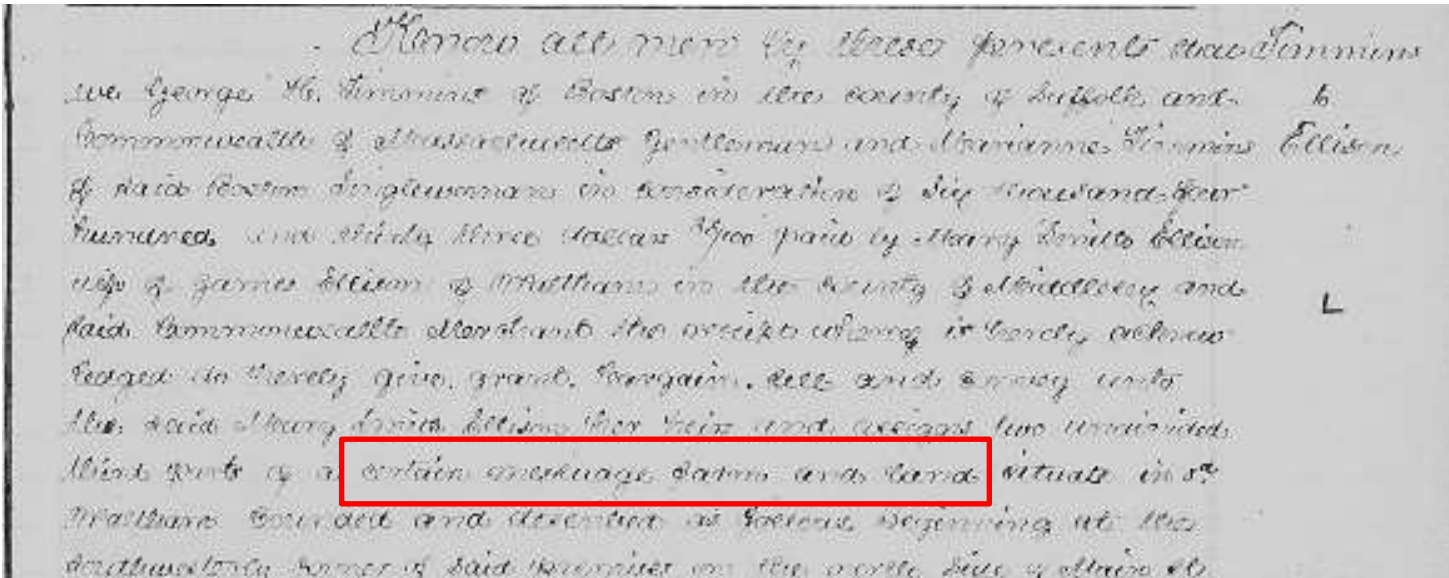 Know all men by these presents that Timmins
we George H. Timmins of Boston in the county of Suffolk and to
Commonwealth of Massachusetts Gentleman and Marianne Timmins Ellison
of said Boston Singlewoman in consideration of Six thousand four
hundred and thirty three dollars /100 paid by Mary Smith Ellison
wife of James Ellison of Waltham in the County of Middlesex and
said Commonwealth Merchant the receipt whereof is hereby acknow L
ledged do hereby give, grant, bargain, sell and convey unto
the said Mary Smith Ellison her heirs and assigns two undivided
third parts of a certain messuage farm and land situate in sd
Waltham bounded and described as follows Beginning at the
Southwesterly corner of said premises on the side of Main St